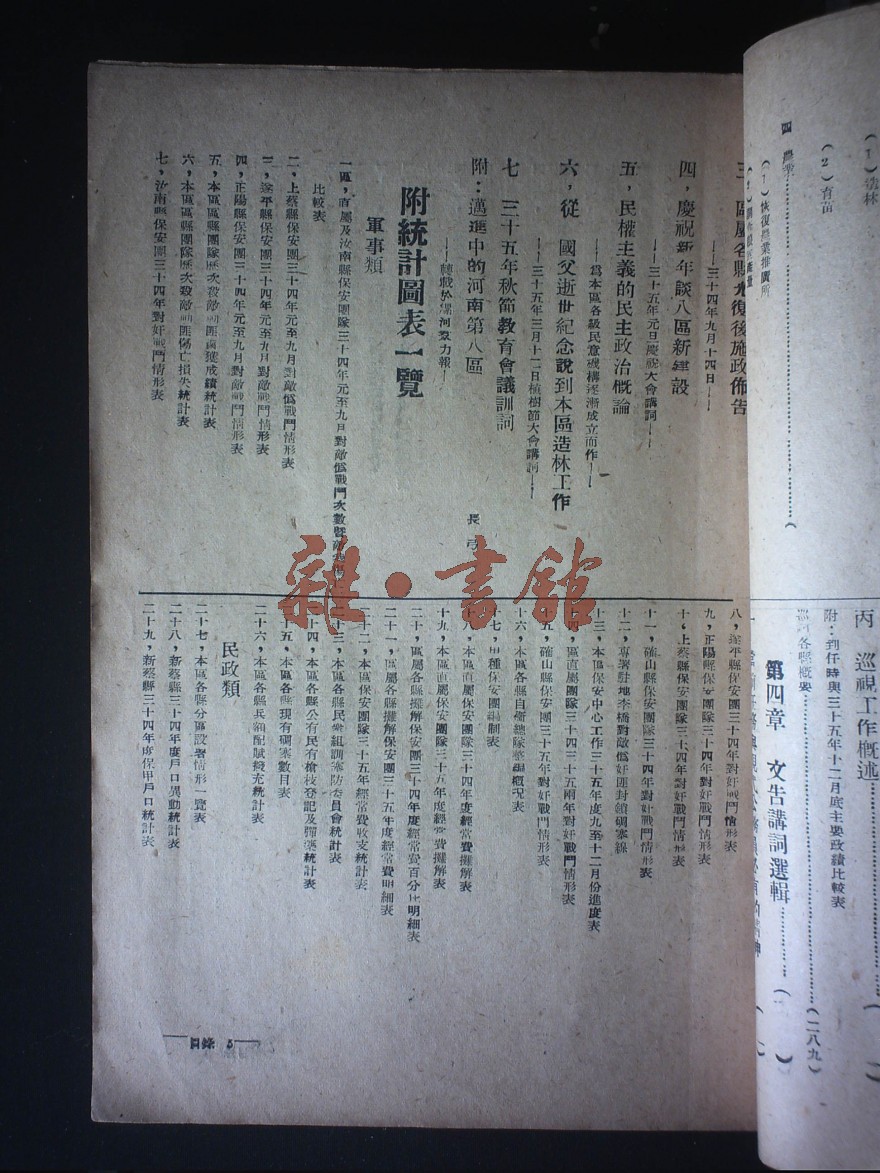 (1)
(2)育苗
四 農業
(1)恢復農業推廣所
丙 巡視工作概述
附：到任時與三十五年十二月底主要政績比較表
巡視各縣概要(二八九)
第四章 文告講詞選輯
三，區屬各縣光復後施政佈告
——三十四年九月十四日——
四，慶祝新年談八區新建設
——三十五年元旦慶祝大會講詞——
五，民權主義的民主政治概論
——為本區各級民意機構逐漸成立而作——
六，從 國父逝世紀念說到本區造林工作
——三十五年三月十二日植樹節大會講詞——
七 三十五年秋節教育會議訓詞
附：邁進中的河南第八區 長弓
——轉載於漯河羣力報——
附統計圖表一覽
軍事類
一區，直屬及汝南縣保安團隊三十四年元至九月對敵偽戰鬥次數暨敵
比較表
二，上蔡縣保安團三十四年元至九月對敵偽戰鬥情形表
三，遂平縣保安團三十四年元至九月對敵戰鬥情形表
四，正陽縣保安團三十四年元至九月對敵戰鬥情形表
五，本區區縣團隊歷次殺敵剿匪鹵獲成績統計表
六，本區區縣團隊歷次殺敵剿匪傷亡損失統計表
七，汝南縣保安團三十四年對奸戰鬥情形表
八，遂平縣保安團三十四年對奸戰鬥情形表
九，正陽縣保安團隊三十四年對奸戰鬥情形表
十，上蔡縣保安團隊三十四年對奸戰鬥情形表
十一，確山縣保安團隊三十四年對奸戰鬥情形表
十二，專署駐地李橋對敵偽奸匪封鎖碉寨線
十三，本區保安中心工作三十五年度九至十二月份進度表
十四，區直屬團隊三十四三十五兩年對奸戰鬥情形表
十五，確山縣保安團三十五年對奸戰鬥情形表
十六，本區各縣自衛總隊整編概況表
十七，甲種保安團編制表
十八，本區直屬保安團隊三十四年度經常費攤解表
十九，本區直屬保安團隊三十五年度經常費攤解表
二十，區屬各縣攤解保安團三十四年度經常費百分比明細表
二十一，區屬各縣攤解保安團三十五年度經常費明細表
二十二，本區保安團隊三十五年經常費收支統計表
二十三，本區各縣民眾組訓寨防委員會統計表
二十四，本區各縣公有民有槍枝登記及彈藥統計表
二十五，本區各縣現有碉寨數目表
二十六，本區各縣兵額配賦撥充統計表
民政類
二十七，本區各縣分區設署情形一覽表
二十八，新蔡縣三十四年度戶口異動統計表
二十九，新蔡縣三十四年度保甲戶口統計表
——目錄 5——
雜·書館